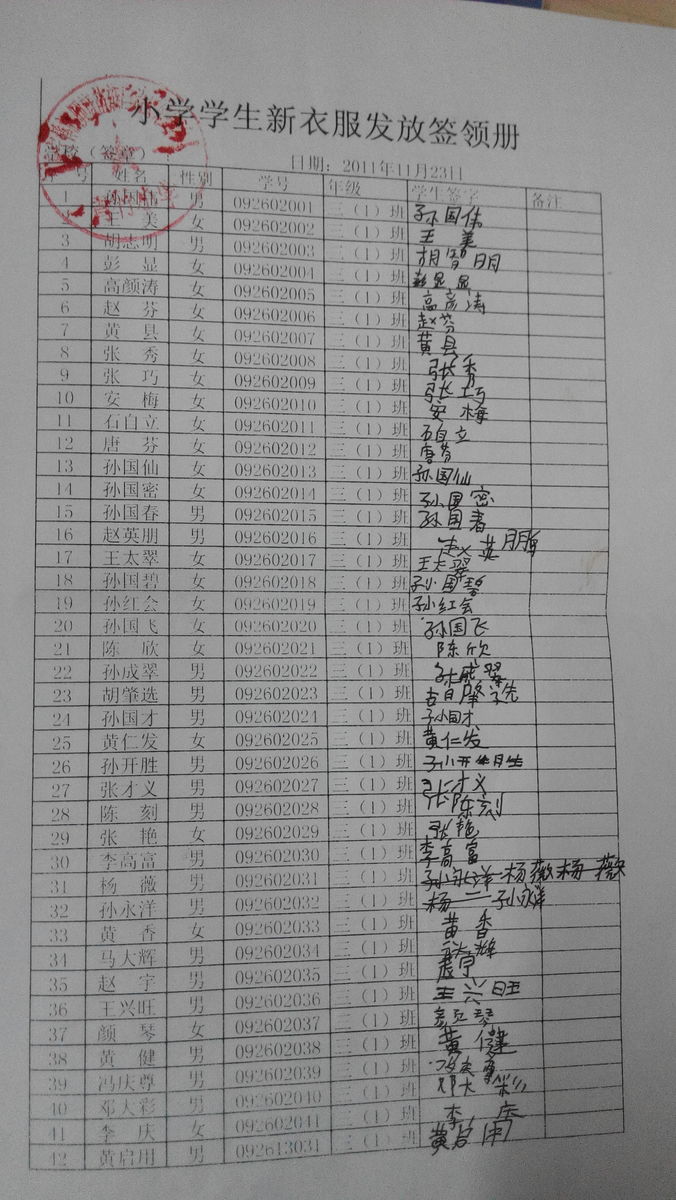 小学学生新衣服发放签领册
学校（签章） 日期：2011年11月23日
序号 姓名 性别 学号 年级 学生签字 备注
1 孙国伟 男 092602001 三（1）班 孙国伟
2 王美 女 092602002 三（1）班 王美
3 胡志明 男 092602003 三（1）班 胡智明
4 彭显 女 092602004 三（1）班 彭显
5 高颜涛 女 092602005 三（1）班 高彦涛
6 赵芬 女 092602006 三（1）班 赵芬
7 黄县 女 092602007 三（1）班 黄县
8 张秀 女 092602008 三（1）班 张秀
9 张巧 女 092602009 三（1）班 张巧
10 安梅 女 092602010 三（1）班 安梅
11 石自立 女 092602011 三（1）班 石自立
12 唐芬 女 092602012 三（1）班 唐芬
13 孙国仙 女 092602013 三（1）班 孙国仙
14 孙国密 女 092602014 三（1）班 孙国密
15 孙国春 男 092602015 三（1）班 孙国春
16 赵英朋 男 092602016 三（1）班 赵英朋
17 王太翠 女 092602017 三（1）班 王太翠
18 孙国碧 女 092602018 三（1）班 孙国碧
19 孙红会 女 092602019 三（1）班 孙红会
20 孙国飞 女 092602020 三（1）班 孙国飞
21 陈欣 女 092602021 三（1）班 陈欣
22 孙成翠 男 092602022 三（1）班 孙成翠
23 胡肇选 男 092602023 三（1）班 胡肇
24 孙国才 男 092602024 三（1）班 孙国才
25 黄仁发 女 092602025 三（1）班 黄仁发
26 孙开胜 男 092602026 三（1）班 孙开胜
27 张才义 男 092602027 三（1）班 张才义
28 陈刻 男 092602028 三（1）班 张陈刻
29 张艳 女 092602029 三（1）班 张艳
30 李高富 男 092602030 三（1）班 李高富
31 杨薇 男 092602031 三（1）班 孙永洋 杨薇 杨薇
32 孙永洋 男 092602032 三（1）班 杨 孙永洋
33 黄香 女 092602033 三（1）班 黄香
34 马大辉 男 092602034 三（1）班
35 赵宇 男 092602035 三（1）班
36 王兴旺 男 092602036 三（1）班 王兴旺
37 颜琴 女 092602037 三（1）班 琴
38 黄健 男 092602038 三（1）班 黄健
39 冯庆尊 男 092602039 三（1）班 冯庆尊
40 邓大彩 男 092602040 三（1）班 邓大彩
41 李庆 女 092602041 三（1）班 李庆
42 黄启用 男 092613031 三（1）班 黄启用